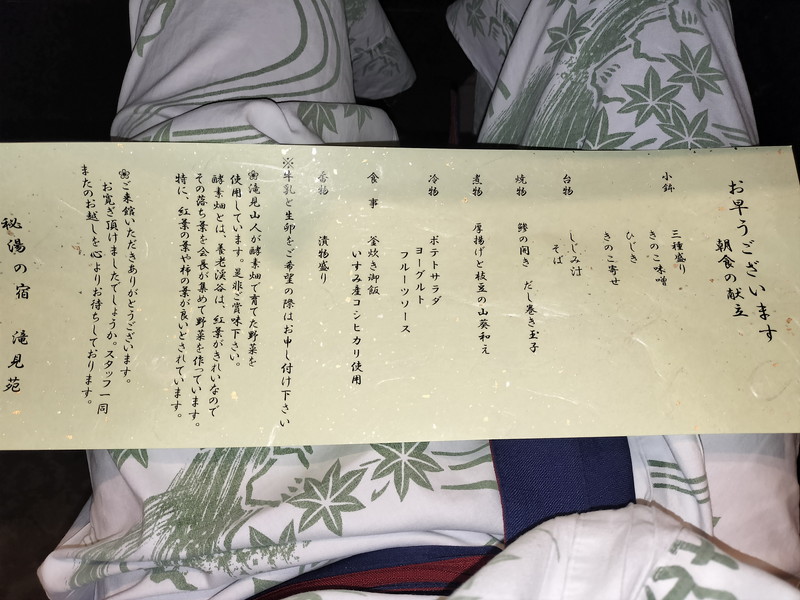 お早うございます
朝食の献立
小鉢
三種盛り
きのこ味噌
ひじき
きのこ寄せ
台物
しじみ汁
そば
焼物 鯵の開き だし巻き玉子
煮物 厚揚げと枝豆の山葵和え
冷物 ポテトサラダ
ヨーグルト
フルーツソース
食事 釜炊き御飯
いすみ産コシヒカリ使用
香物 漬物盛り
※牛乳と生卵をご希望の際はお申し付け下さい
滝見山人が酵素畑で育てた野菜を
使用しています。是非ご賞味下さい。
酵素畑とは、養老渓谷は、紅葉がきれいなので
その落ち葉を会長が集めて野菜を作っています。
特に、紅葉の葉や柿の葉が良いとされています。
ご来館いただきありがとうございます。
お寛ぎ頂けましたでしょうか。スタッフ一同
またのお越しを心よりお待ちしております。
秘湯の宿 滝見苑